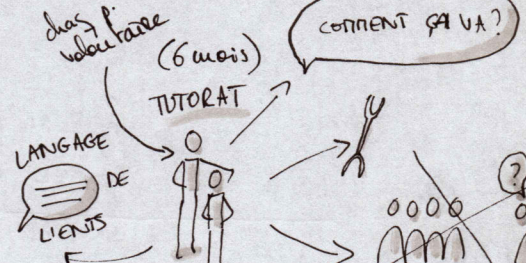 volontaire
(6 mois)
TUTORAT
COMMENT ÇA VA ?
LANGAGE
DE
LIENTS
?